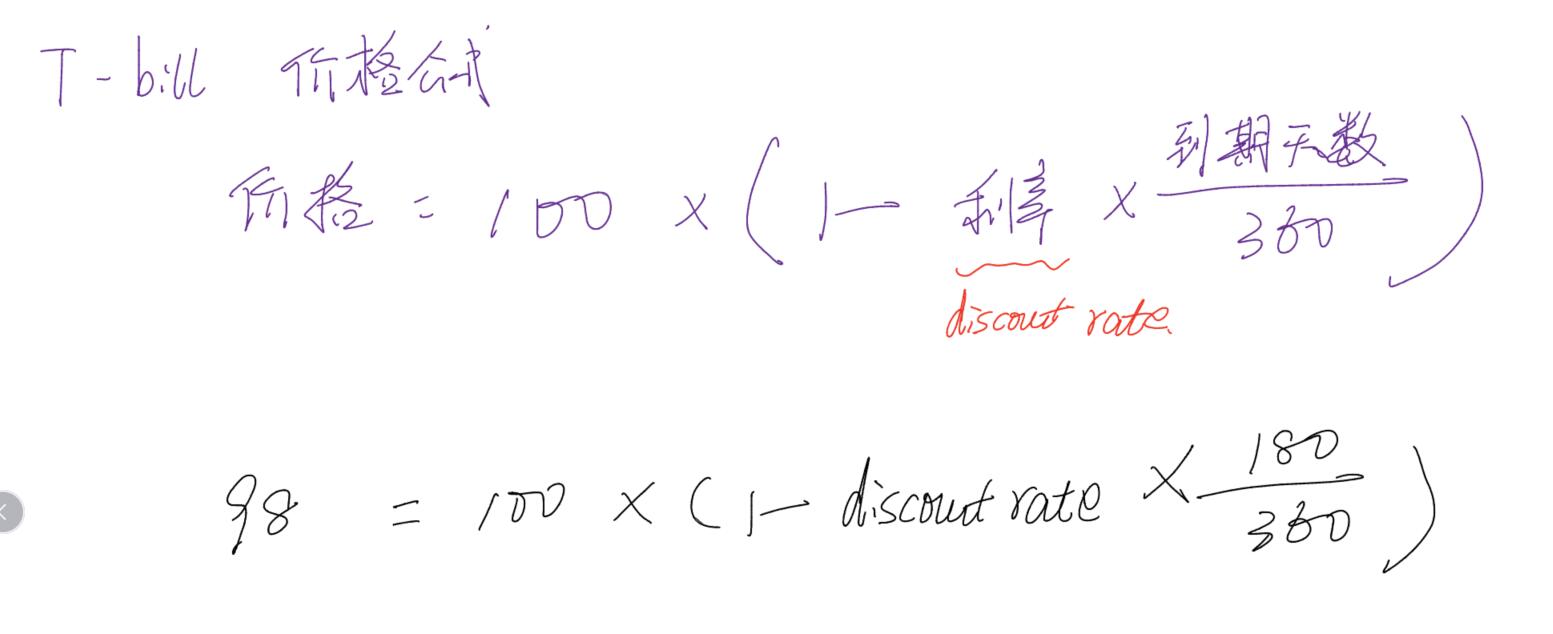 T-bill 价格公式
价格 = 100 × ( 1 - 利率 × 到期天数 / 360 )
discout rate.
98 = 100 × ( 1 - discout rate × 180 / 360 )